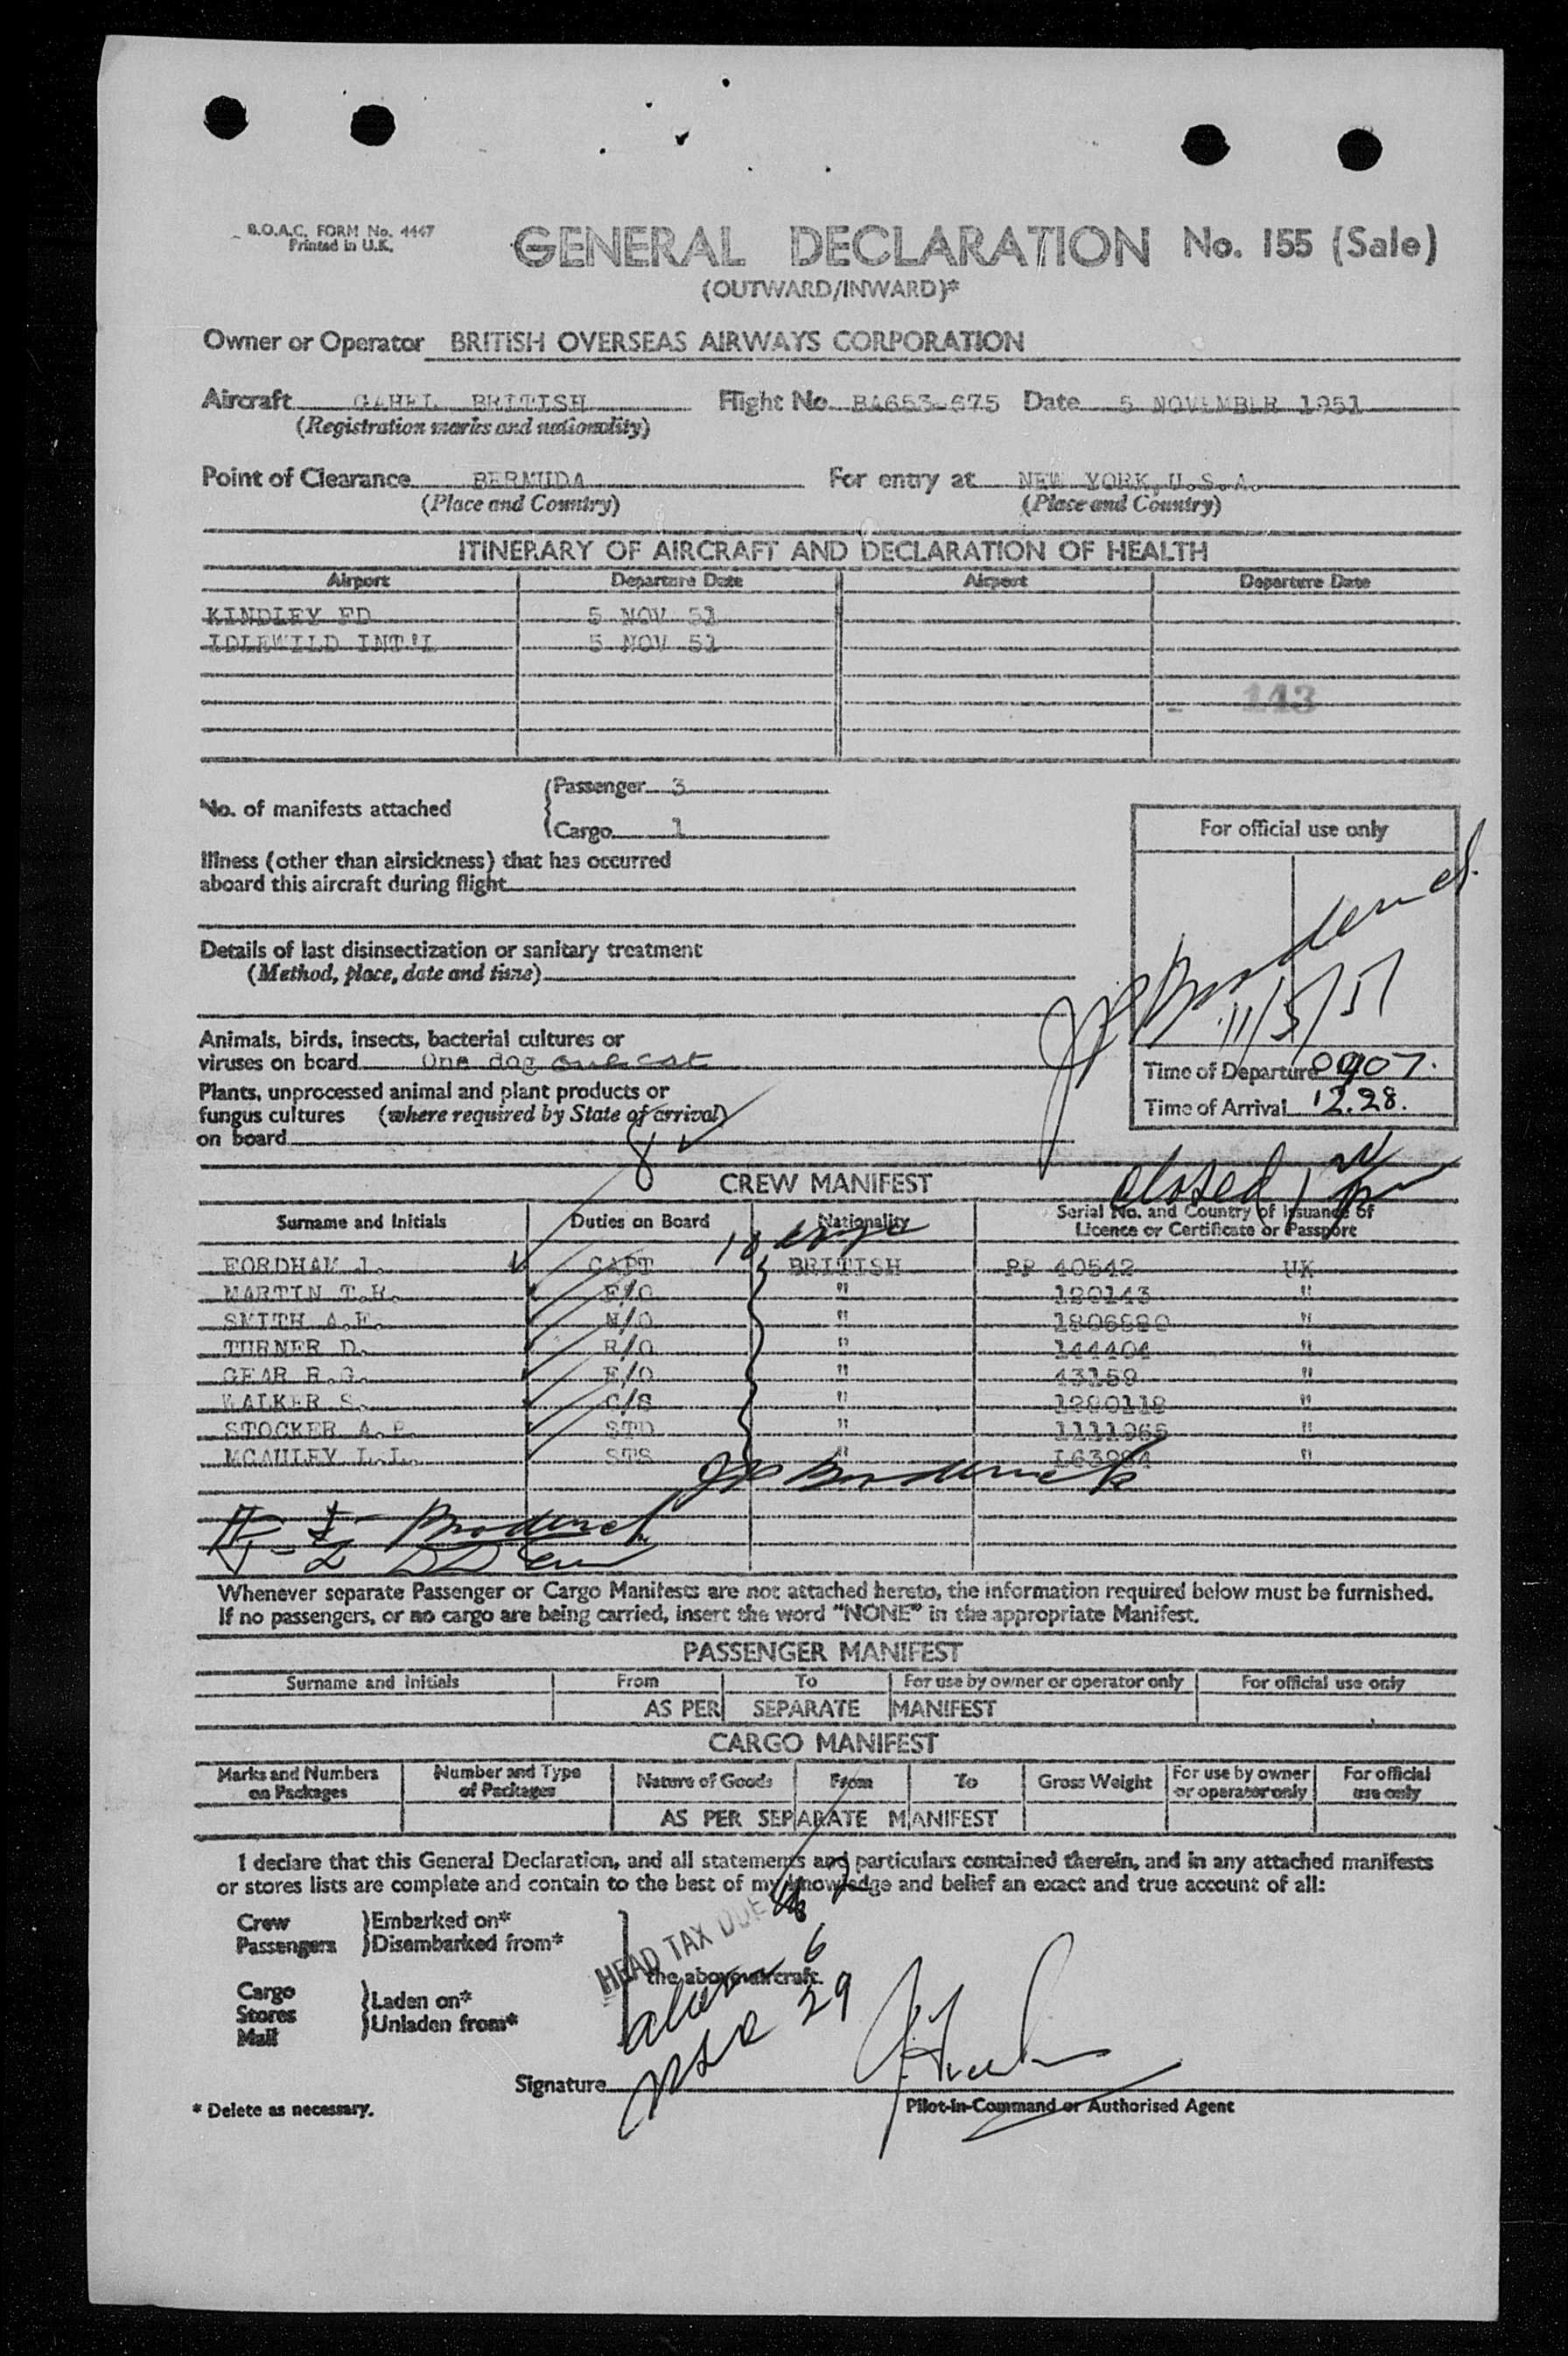 B.O.A.C. FORM No. 4447
Printed in U.K.
GENERAL DECLARATION No. 155 (Sale)
(OUTWARD/INWARD)*
Owner or Operator BRITISH OVERSEAS AIRWAYS CORPORATION
Aircraft GAHEL BRITISH Flight No BA653-675 Date 5 NOVEMBER 1951
(Registration marks and nationality)
Point of Clearance BERMUDA For entry at NEW YORK, U.S.A.
(Place and Country) (Place and Country)
ITINERARY OF AIRCRAFT AND DECLARATION OF HEALTH
Airport Departure Date Airport Departure Date
KINDLEY FD 5 NOV 51
IDLEWILD INT'L 5 NOV 51
143
No. of manifests attached
Passenger 3
Cargo 1
For official use only
Illness (other than airsickness) that has occurred
aboard this aircraft during flight
Details of last disinsectization or sanitary treatment
(Method, place, date and time)
11/5/51
Animals, birds, insects, bacterial cultures or
viruses on board One dog one cat
Time of Departure 0907.
Plants, unprocessed animal and plant products or
fungus cultures (where required by State of arrival)
on board
Time of Arrival 12.28.
8
closed
CREW MANIFEST
Surname and Initials Duties on Board Nationality Serial No. and Country of Issuance of
Licence or Certificate or Passport
FORDHAM J. CAPT BRITISH PP 40542 UK
MARTIN T.R. F/O " 120143 "
SMITH A.E. N/O " 1806880 "
TURNER D. R/O " 144404 "
GEAR R.G. E/O " 43159 "
WALKER S. C/S " 1280118 "
STOCKER A.P. STD " 1111965 "
MCAULEY L.L. STS " L63984 "
JP Broderick
Broderick
Whenever separate Passenger or Cargo Manifests are not attached hereto, the information required below must be furnished.
If no passengers, or no cargo are being carried, insert the word "NONE" in the appropriate Manifest.
PASSENGER MANIFEST
Surname and Initials From To For use by owner or operator only For official use only
AS PER SEPARATE MANIFEST
CARGO MANIFEST
Marks and Numbers on Packages Number and Type of Packages Nature of Goods From To Gross Weight For use by owner or operator only For official use only
AS PER SEPARATE MANIFEST
I declare that this General Declaration, and all statements and particulars contained therein, and in any attached manifests
or stores lists are complete and contain to the best of my knowledge and belief an exact and true account of all:
Crew
Passengers
Embarked on*
Disembarked from*
HEAD TAX DUE
the above aircraft.
6
29
Cargo
Stores
Mail
Laden on*
Unladen from*
Signature
* Delete as necessary.
Pilot-in-Command or Authorised Agent